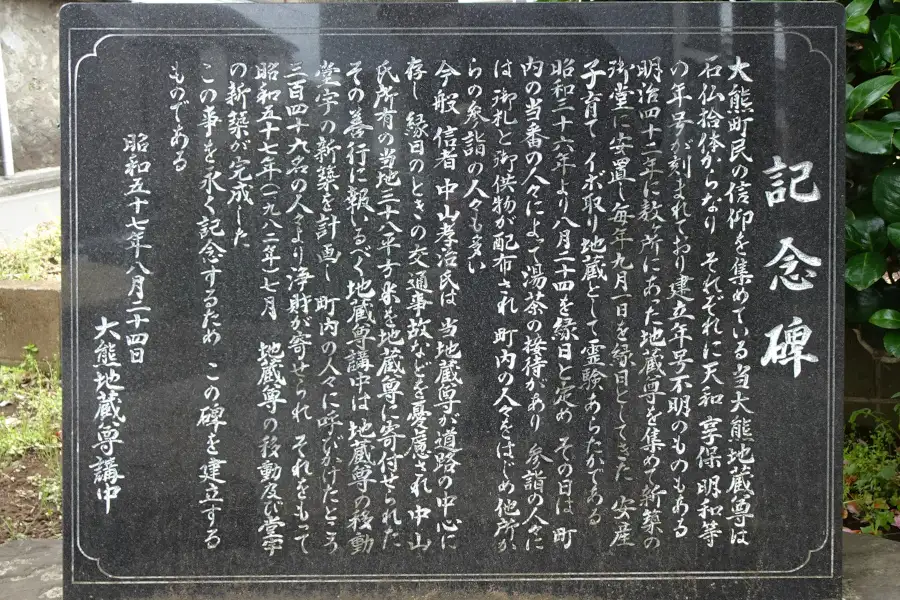 記念碑
大熊町民の信仰を集めている当大熊地蔵尊は
石仏拾体からなり それぞれに天和 享保 明和等
の年号が刻まれており 建立年号不明のものもある
明治四十二年に数ヶ所にあった地蔵尊を集めて新築の
御堂に安置し毎年九月一日を縁日としてきた 安産
子育て イボ取り地蔵として霊験あらたかである
昭和三十六年より八月二十四を縁日と定め その日は 町
内の当番の人々によって湯茶の接待があり 参詣の人々に
は御札と御供物が配布され 町内の人々をはじめ他所か
らの参詣の人々も多い
今般 信者 中山孝治氏は 当地蔵尊が道路の中心に
存し 縁日のときの交通事故などを憂慮され 中山
氏所有の当地三十八平方米を地蔵尊に寄付せられた
その善行に報いるべく地蔵尊講中は 地蔵尊の移動
堂宇の新築を計画し 町内の人々に呼びかけたところ
三百四十九名の人々より浄財が寄せられ それをもって
昭和五十七年(一九八二年)七月 地蔵尊の移動及び堂宇
の新築が完成した
この事を永く記念するため この碑を建立する
ものである
昭和五十七年八月二十四日
大熊地蔵尊講中